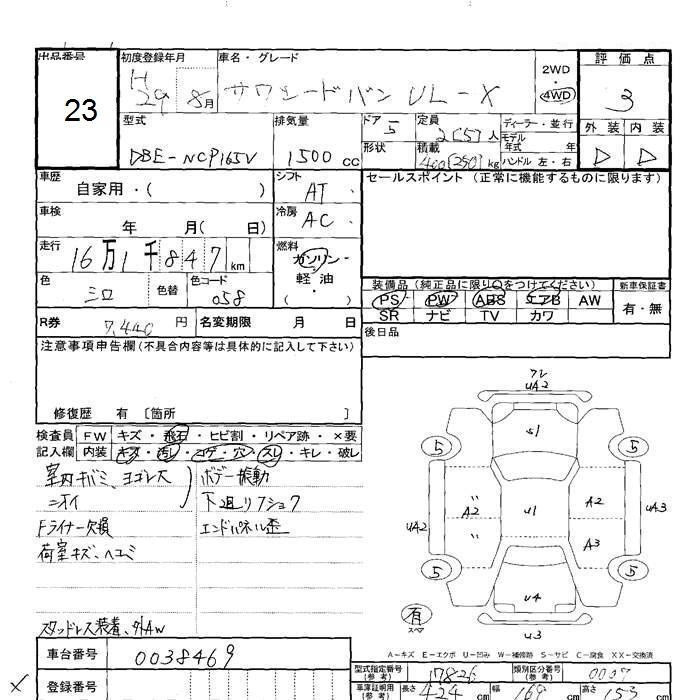 出品番号
23
初度登録年月
H29 8月
車名・グレード
サクシードバン UL-X
2WD
・
4WD
評価点
3
外装 内装
D D
型式
DBE-NCP165V
排気量
1500 cc
ドア
5
形状
定員
2(5) 人
積載
400(250) kg
ディーラー・並行
モデル年式 年
ハンドル 左・右
車歴
自家用・( )
シフト
AT
セールスポイント (正常に機能するものに限ります)
車検
年 月( 日)
冷房
AC
走行
16万1千847 km
燃料
ガソリン・
軽油
・( )
色
シロ
色替
色コード
058
装備品 (純正品に限り○をつけてください)
新車保証書
PS PW ABS エアB AW
SR ナビ TV カワ
有・無
R券
7,440 円
名変期限 月 日
後日品
注意事項申告欄 (不具合内容等は具体的に記入して下さい)
修復歴 有 〔箇所 〕
検査員
記入欄
FW キズ・飛石・ヒビ割・リペア跡・×要
内装 キズ・汚レ・コゲ・穴・スレ・キレ・破レ
室内キバミ、ヨゴレ大
ニオイ
Fライナー欠損
荷室キズ、ヘコミ
ボデー振動
下廻リフショク
エンドパネル歪
スタッドレス装着、外AW
UA2
S1
5 5
A2 U1 A2
UA2 UA3
A3
5 5
U4
有
スペア
U3
A-キズ E-エクボ U-凹み W-補修跡 S-サビ C-腐食 XX-交換済
車台番号
0038469
登録番号
型式指定番号
(参考)
17826
類別区分番号
(参考)
0007
車庫証明用
(参考)
長さ 424 cm
幅 169 cm
高さ 153 cm